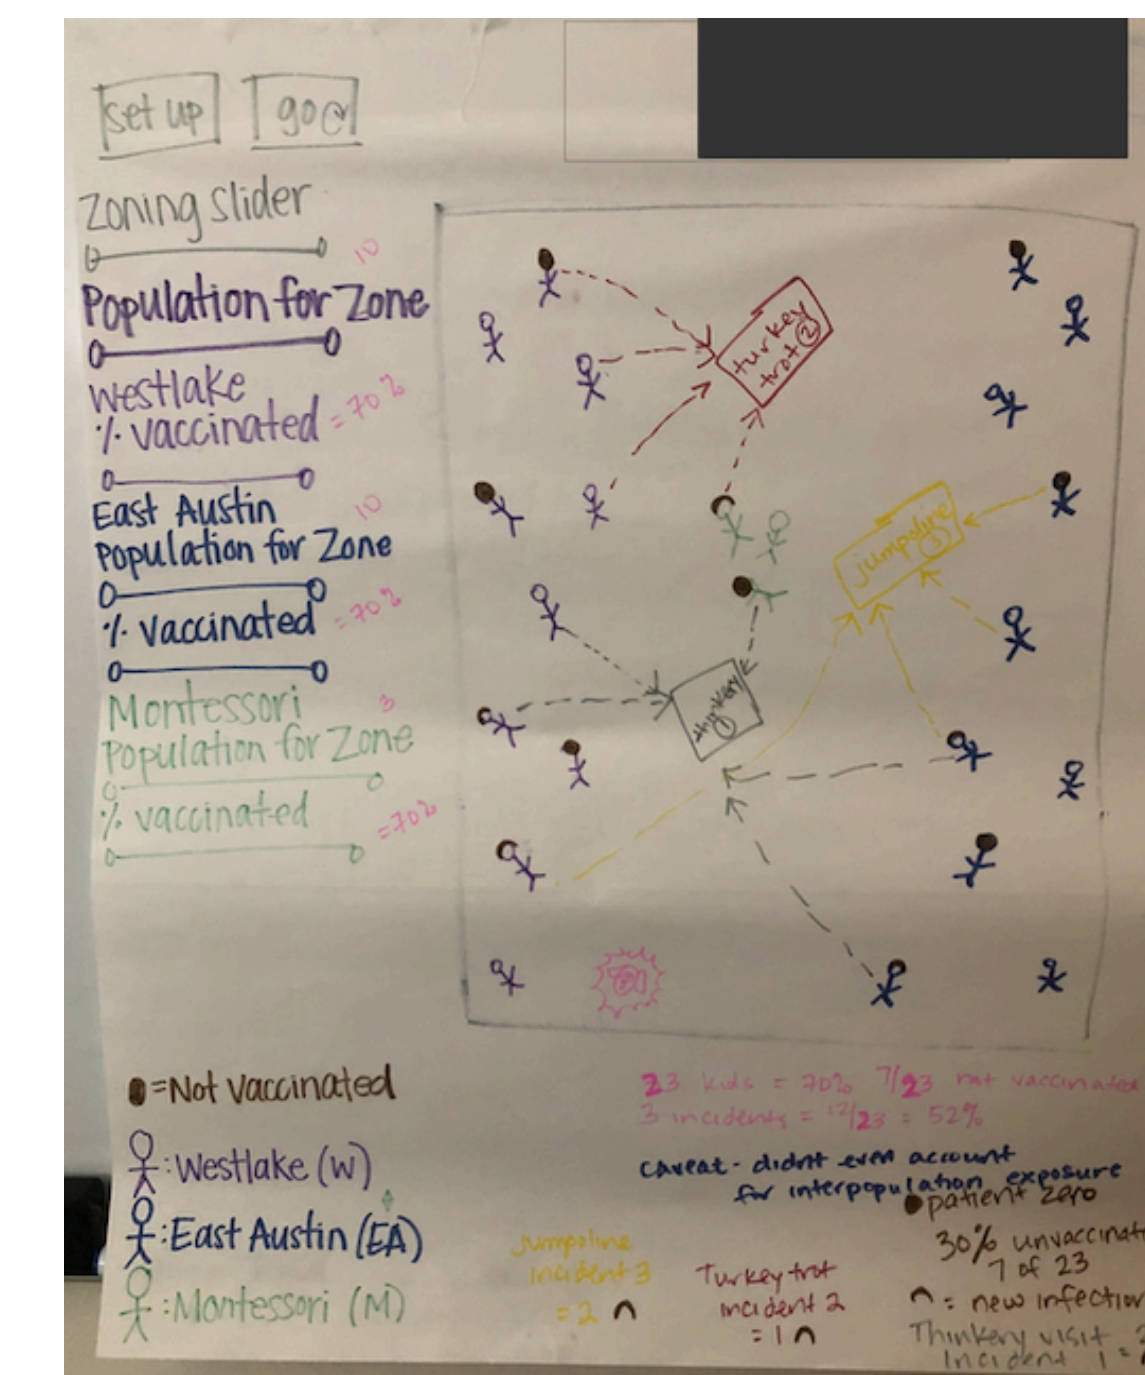 set up
go
Zoning Slider
10
Population for Zone
Westlake
% vaccinated = 70%
East Austin
10
Population for Zone
% vaccinated = 70%
Montessori
3
Population for Zone
% vaccinated
= 70%
turkey
trot 2
jumpoline
3
thinkery
1
= Not vaccinated
: Westlake (W)
: East Austin (EA)
: Montessori (M)
23 kids = 70% 7/23 not vaccinated
3 incidents = 12/23 = 52%
caveat - didnt even account
for interpopulation exposure
patient zero
30% unvaccinat
7 of 23
= new infection
Thinkery visit
Incident 1 =
Jumpoline
incident 3
= 2
Turkey trot
incident 2
= 1